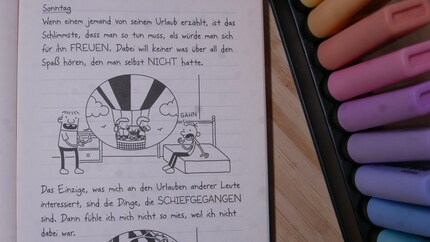 Sonntag
Wenn einem jemand von seinem Urlaub erzählt, ist das
Schlimmste, dass man so tun muss, als würde man sich
für ihn FREUEN. Dabei will keiner was über all den
Spaß hören, den man selbst NICHT hatte.
GÄHN
Das Einzige, was mich an den Urlauben anderer Leute
interessiert, sind die Dinge, die SCHIEFGEGANGEN
sind. Dann fühle ich mich nicht so mies, weil ich nicht
dabei war.